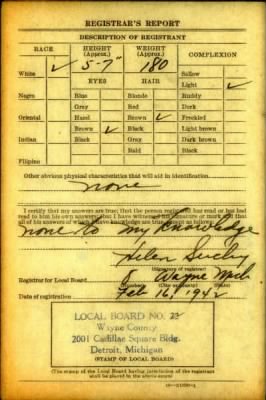 REGISTRAR'S REPORT
DESCRIPTION OF REGISTRANT
RACE
HEIGHT (Approx.)
WEIGHT (Approx.)
COMPLEXION
White ✓
5-7"
180
Sallow
EYES
HAIR
Light ✓
Negro
Blue
Blonde
Ruddy
Gray
Red
Dark
Oriental
Hazel
Brown ✓
Freckled
Brown ✓
Black
Light brown
Indian
Black
Gray
Dark brown
Bald
Black
Filipino
Other obvious physical characteristics that will aid in identification
none
I certify that my answers are true; that the person registered has read or has had
read to him his own answers; that I have witnessed his signature or mark and that
all of his answers of which I have knowledge are true, except as follows:
none to my knowledge
Helen
(Signature of registrar)
Registrar for Local Board 8 Wayne Mich.
Date of registration Feb 16, 1942
LOCAL BOARD NO.
Wayne County
2001 Cadillac Square Bldg.
Detroit, Michigan
(STAMP OF LOCAL BOARD)
(The stamp of the Local Board having jurisdiction of the registrant
shall be placed in the above space.)